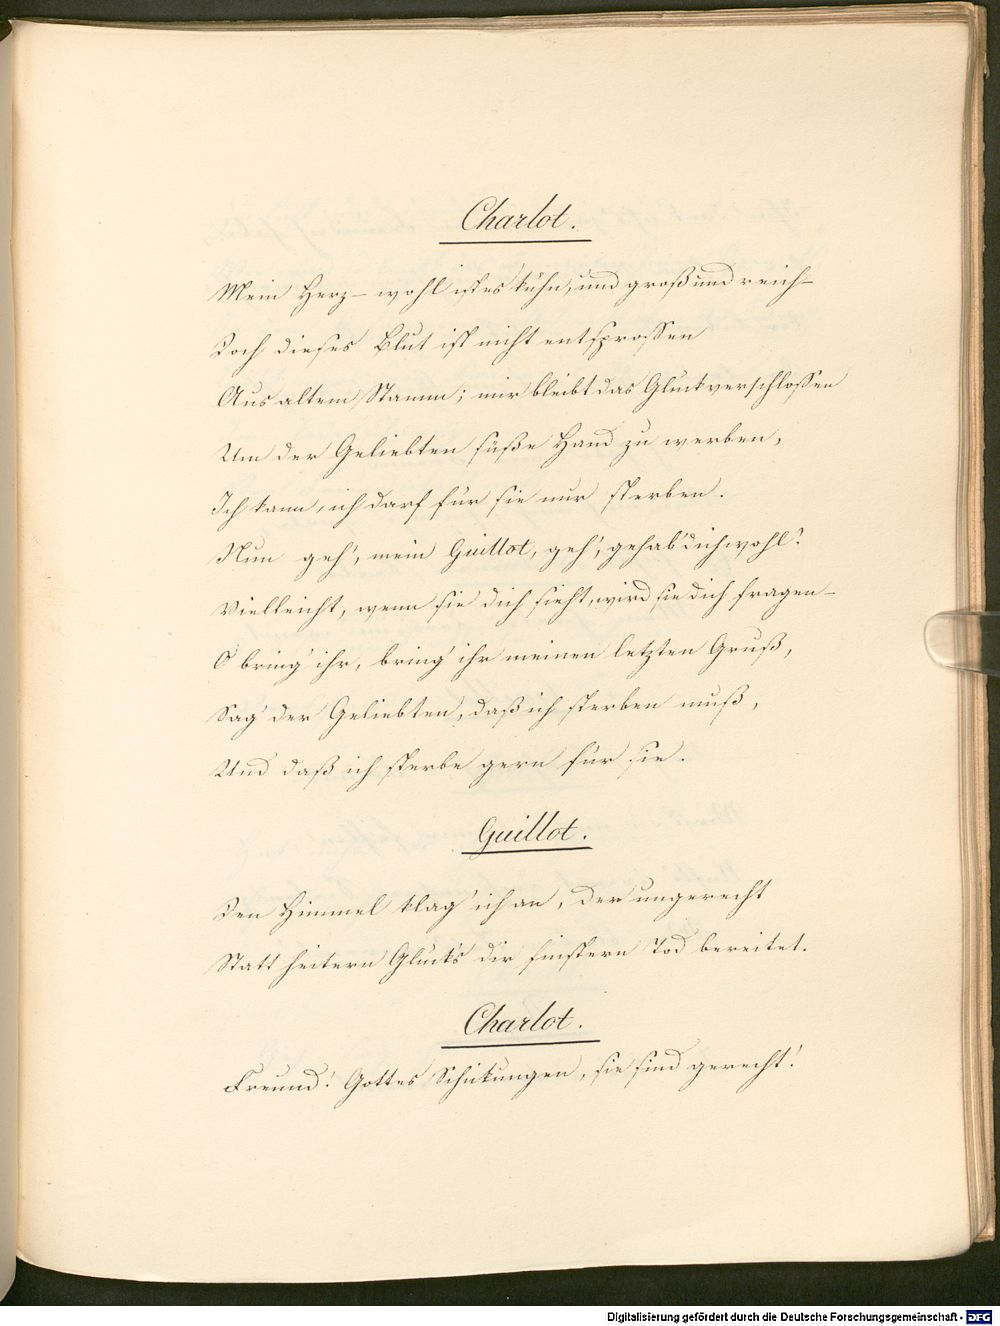 Charlot.
Mein Herz – wohl ist es kühn, und groß und reich –
Doch dieses Blut ist nicht entsprossen
Aus altem Stamm; mir bleibt das Glück verschlossen
Um der Geliebten süße Hand zu werben,
Ich kann, ich darf für sie nur sterben.
Nun geh', mein Guillot, geh', gehab' dich wohl!
Vielleicht, wenn sie dich sieht, wird sie dich fragen –
O bring' ihr, bring' ihr meinen letzten Gruß,
Sag' der Geliebten, daß ich sterben muß,
Und daß ich sterbe gern für sie.
Guillot.
Den Himmel klag' ich an, der ungerecht
Statt heitern Glücks dir finstern Tod bereitet.
Charlot.
Freund! Gottes Schickungen, sie sind gerecht!
Digitalisierung gefördert durch die Deutsche Forschungsgemeinschaft - DFG